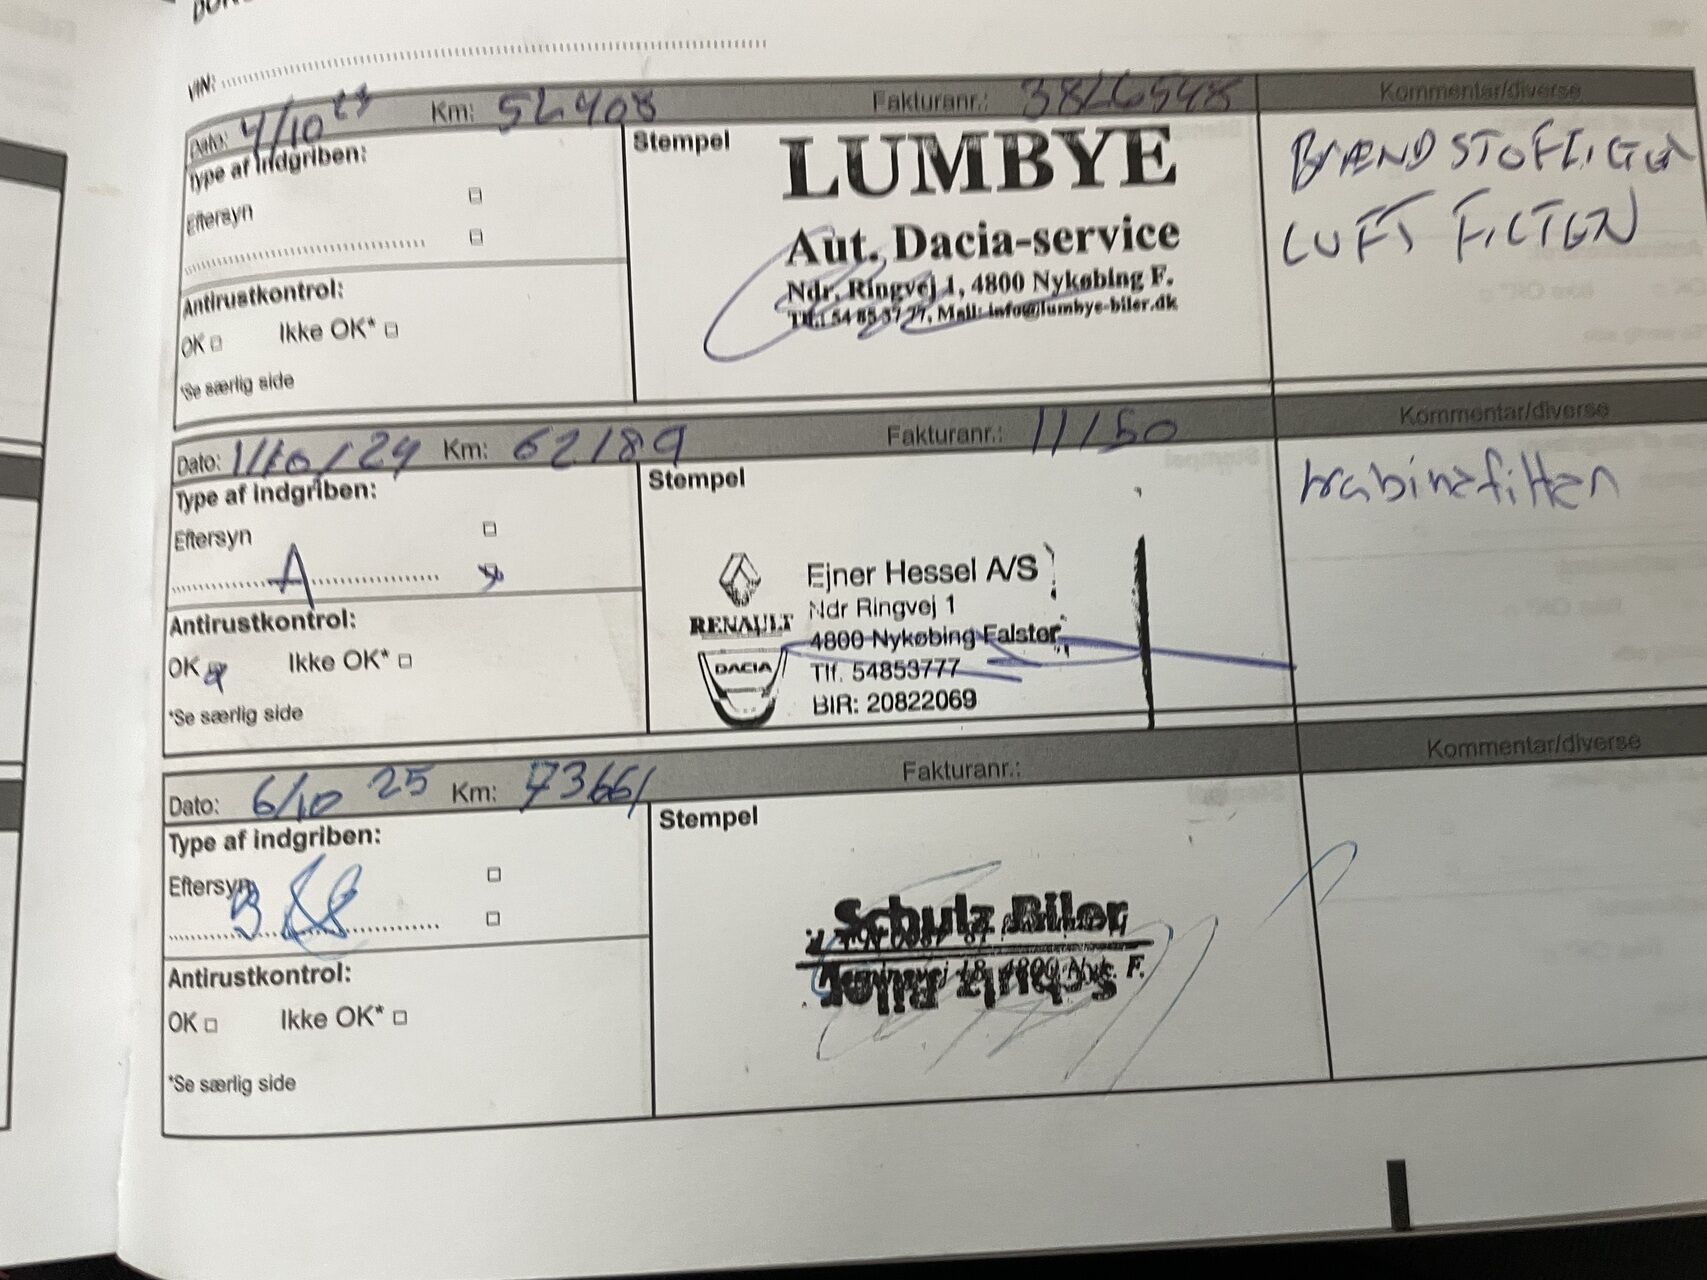 VIN:
Dato: 4/10 23 Km: 54908 Fakturanr.: Kommentar/diverse
Type af indgriben:
Eftersyn
Antirustkontrol:
OK Ikke OK*
*Se særlig side
Stempel
LUMBYE
Aut. Dacia-service
Ndr. Ringvej 1, 4800 Nykøbing F.
Tlf.: 54 85 37 77, Mail: info@lumbye-biler.dk
BRÆNDSTOFFILTER
LUFT FILTER
Dato: 1/10/24 Km: 62189 Fakturanr.: 11150 Kommentar/diverse
Type af indgriben:
Eftersyn
A
Antirustkontrol:
OK Ikke OK*
*Se særlig side
Stempel
RENAULT
DACIA
Ejner Hessel A/S
Ndr Ringvej 1
4800 Nykøbing Falster
Tlf. 54853777
BIR: 20822069
kabinefilter
Dato: 6/10 25 Km: 73661 Fakturanr.: Kommentar/diverse
Type af indgriben:
Eftersyn
Antirustkontrol:
OK Ikke OK*
*Se særlig side
Stempel
Schulz Biler